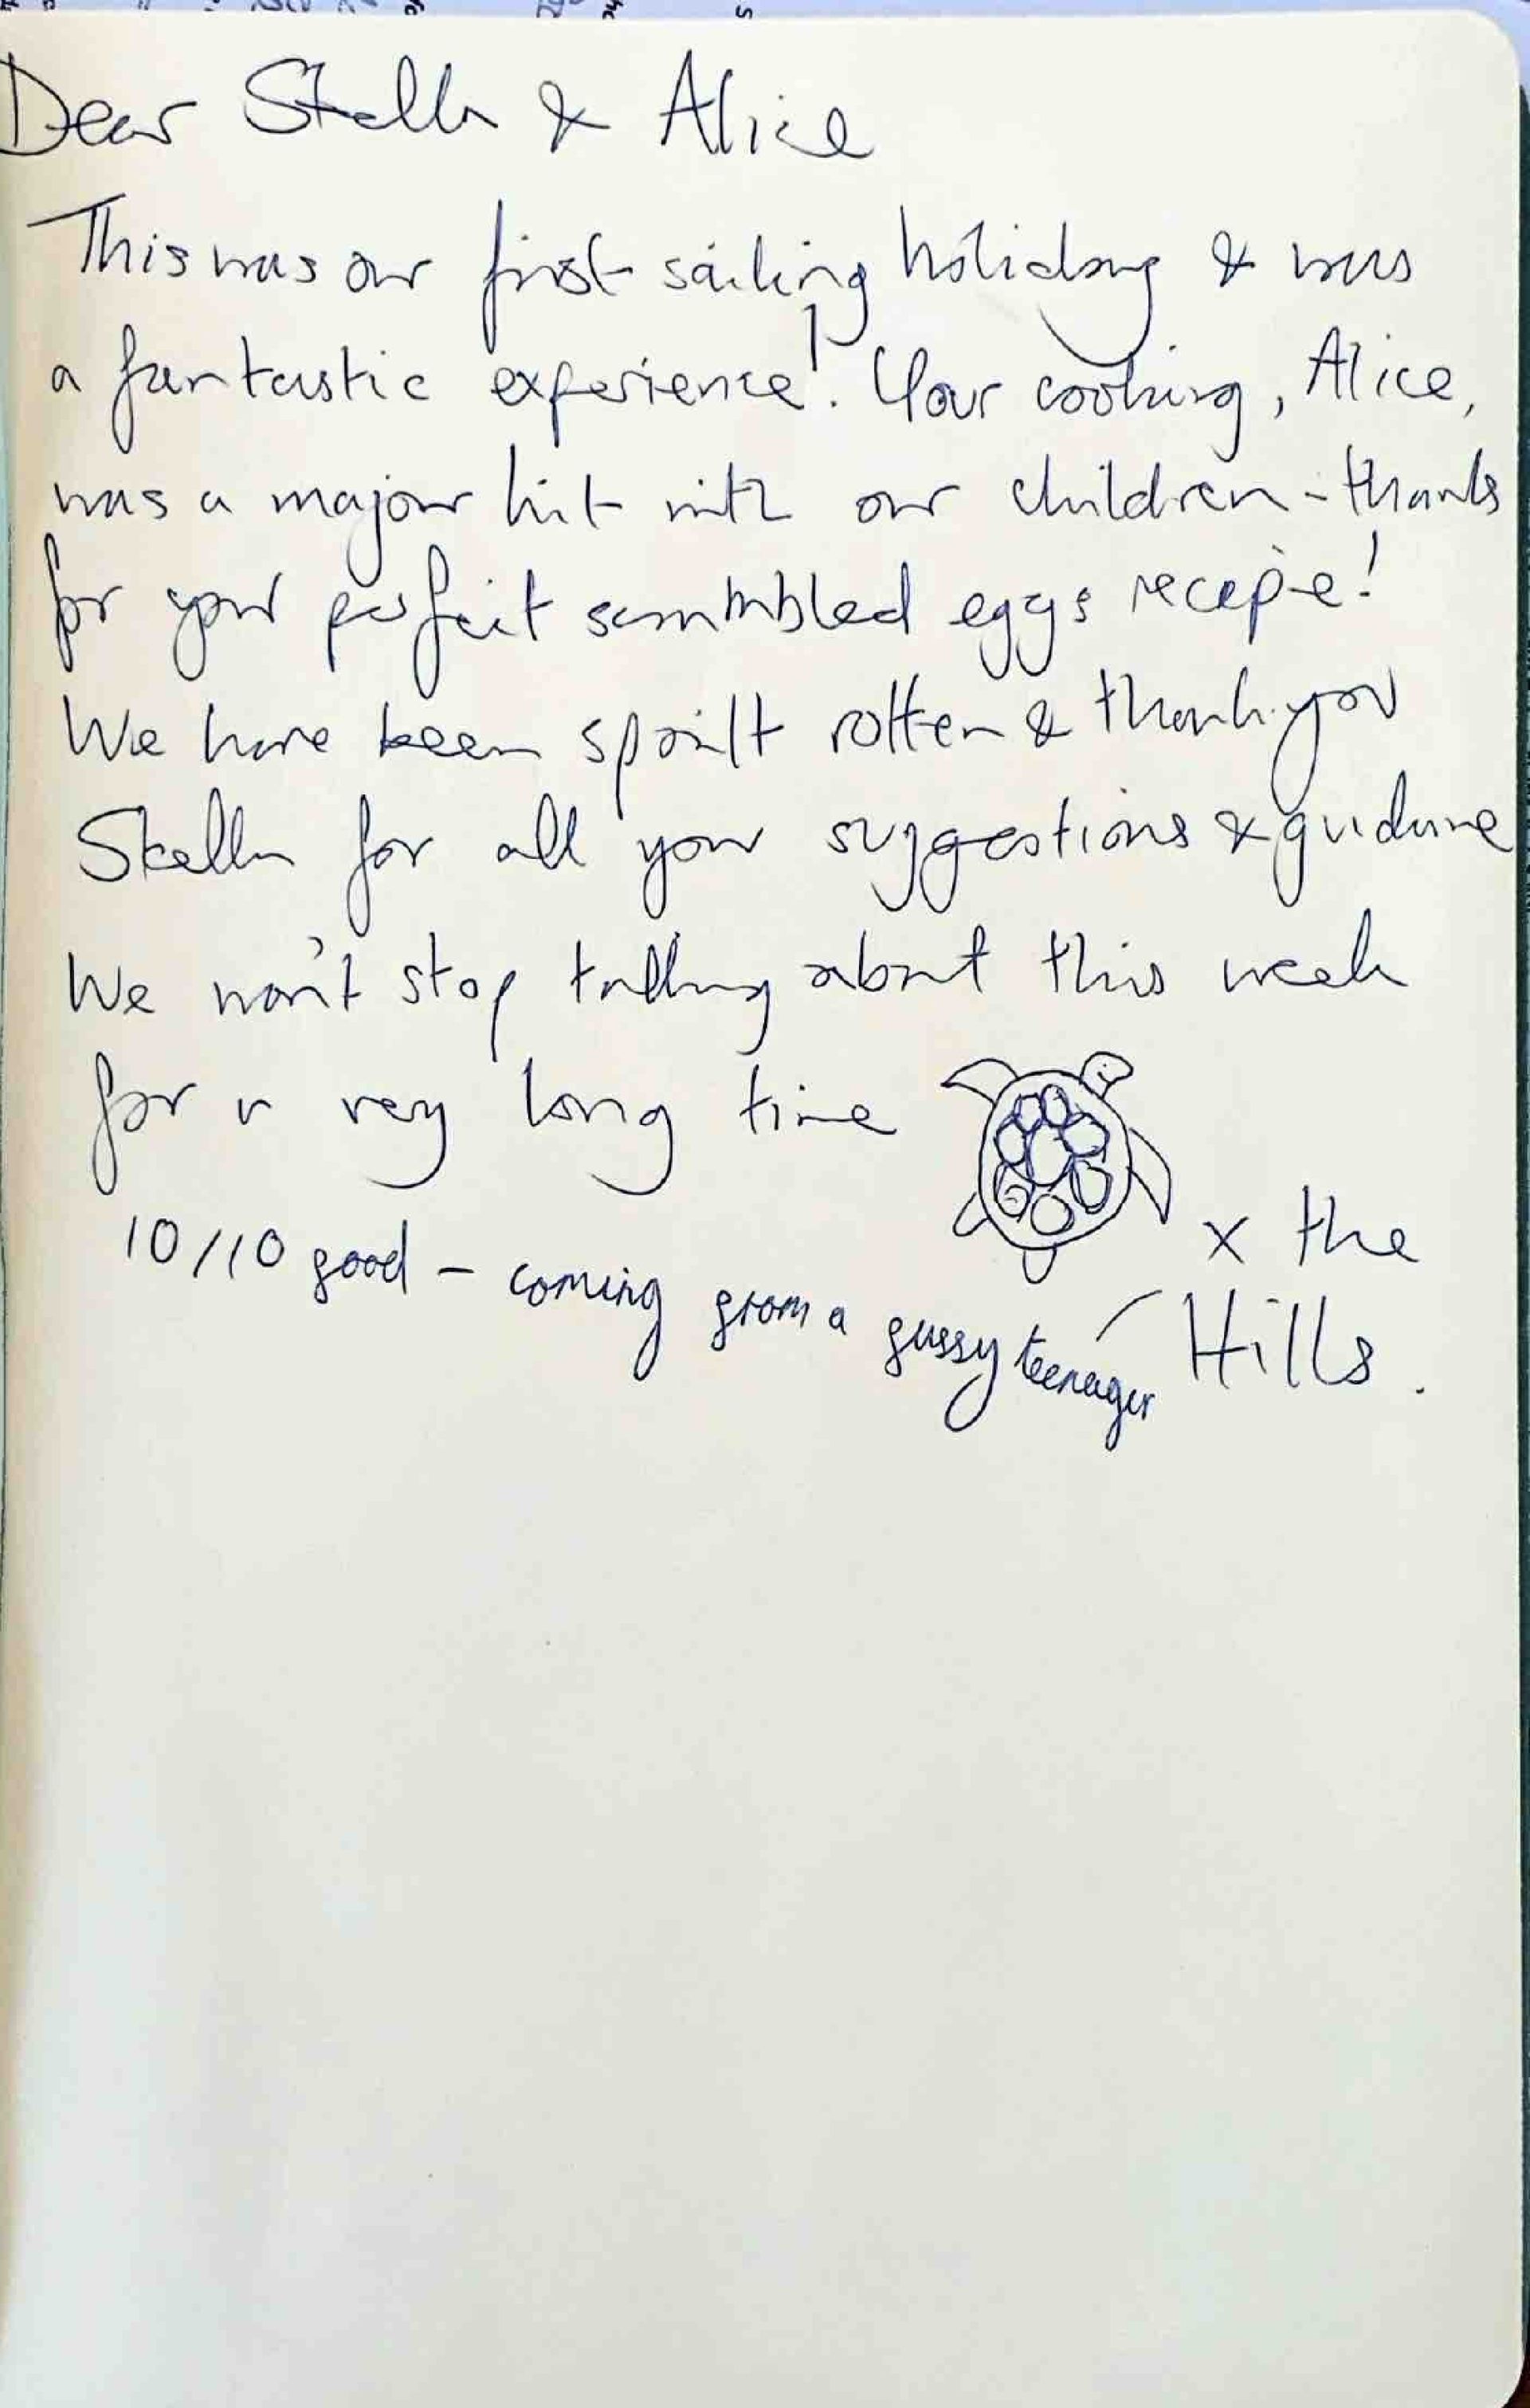 Dear Stella & Alice
This was our first sailing holiday & was
a fantastic experience! Your cooking, Alice,
was a major hit with our children - thanks
for your perfect scrambled eggs recepie!
We have been spoilt rotten & thank you
Stella for all your suggestions & guidance
We won't stop talking about this week
for a very long time
x the
Hills.
10/10 food - coming from a fussy teenager